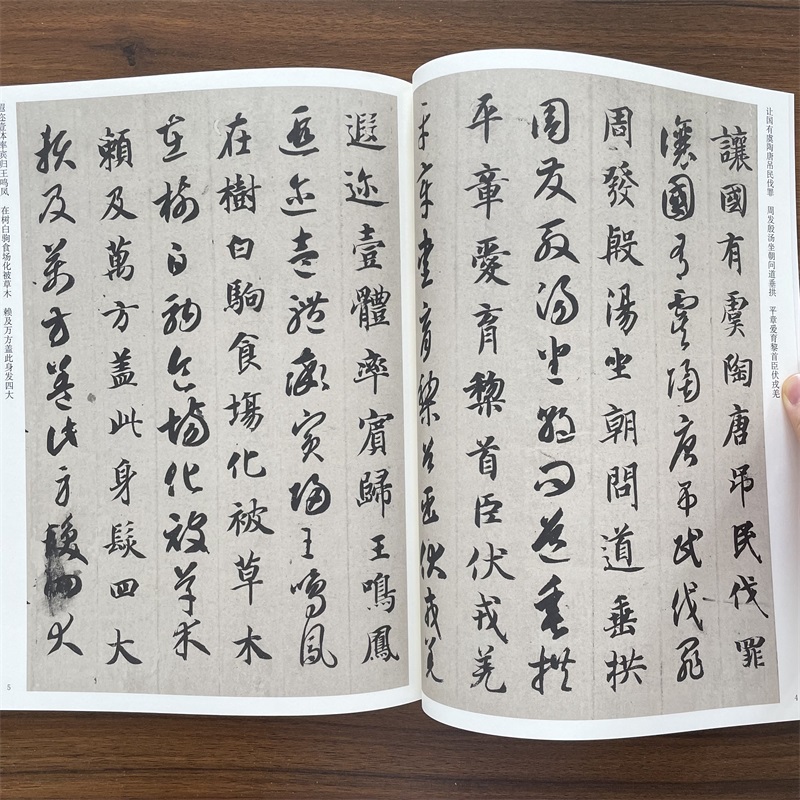 让国有虞陶唐吊民伐罪 周发殷汤坐朝问道垂拱 平章爱育黎首臣伏戎羌
讓國有虞陶唐吊民伐罪
讓國有虞陶唐吊民伐罪
周發殷湯坐朝問道垂拱
周發殷湯坐朝問道垂拱
平章愛育黎首臣伏戎羌
平章愛育黎首臣伏戎羌
4
遐迩壹體率賓歸王鳴鳳
遐迩壹體率賓歸王鳴鳳
在樹白駒食場化被草木
在樹白駒食場化被草木
賴及萬方盖此身髮四大
賴及萬方盖此身髮四大
遐迩壹体率宾归王鸣凤 在树白驹食场化被草木 赖及万方盖此身发四大
5